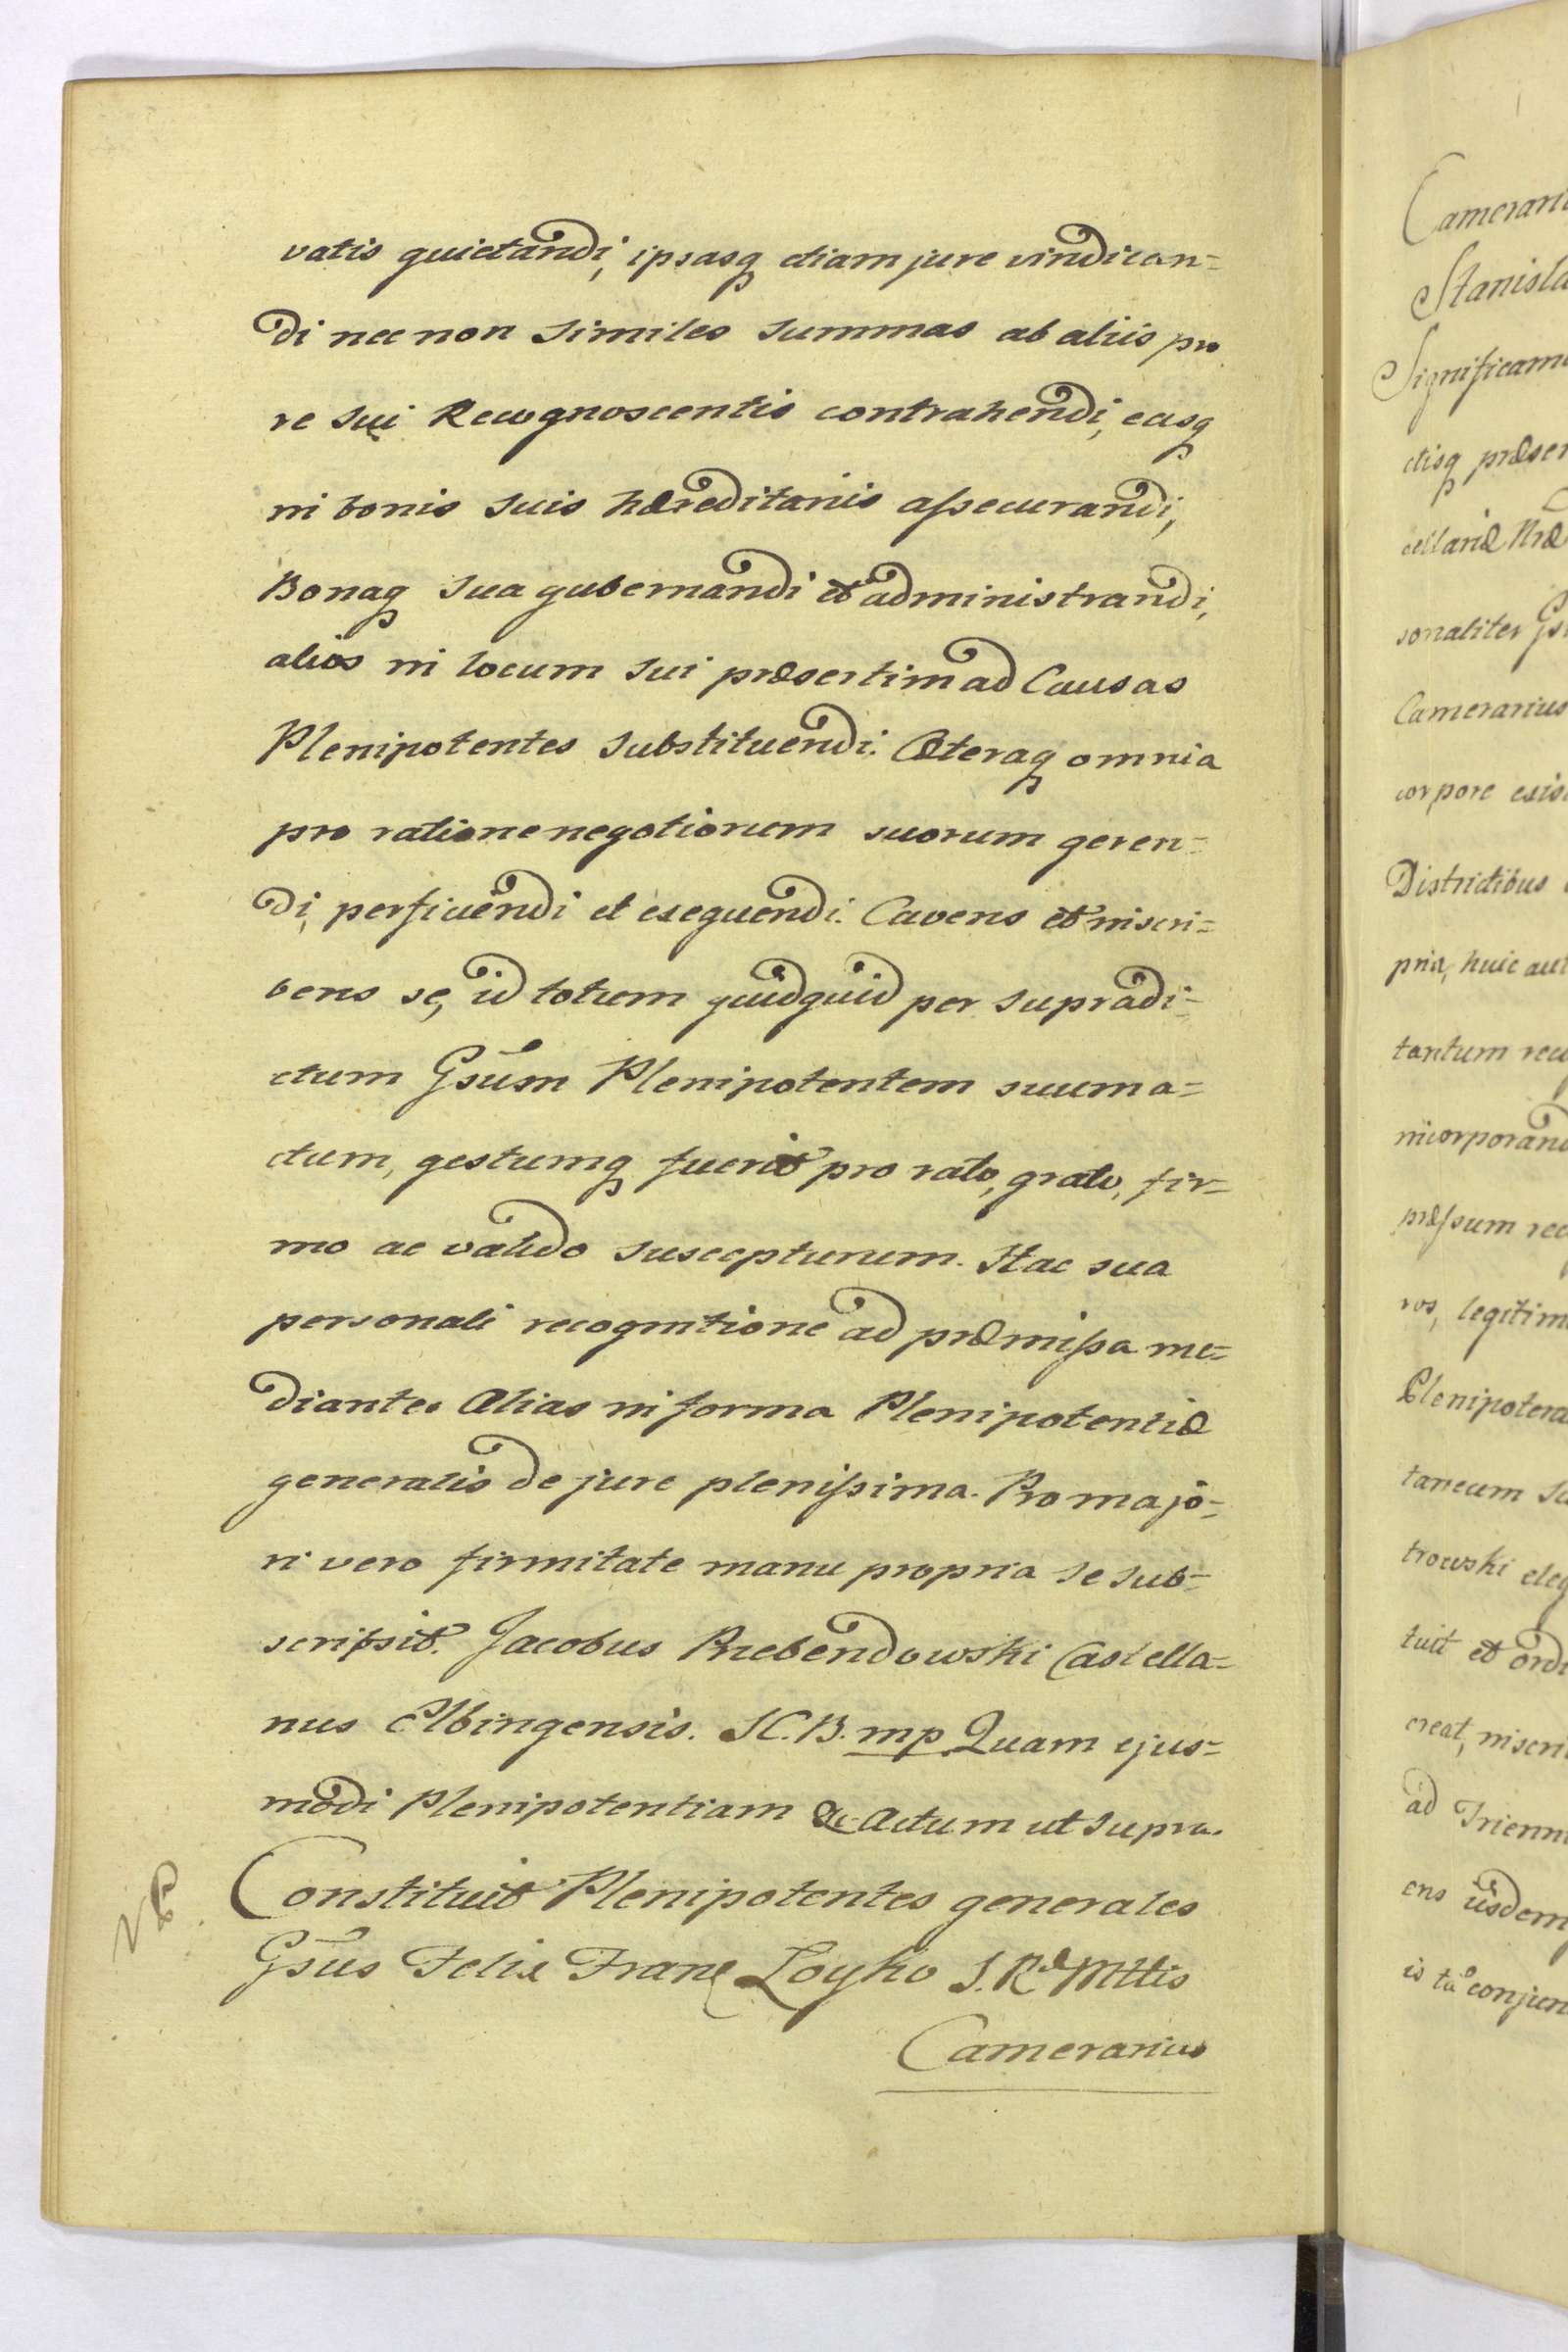 vatis quietandi, ipsasq etiam jure vindican=
di nec non Similes Summas ab aliis pro
re sui Recognoscentis contrahendi, easq
in bonis suis hæreditariis assecurandi,
Bonaq sua gubernandi et administrandi,
alios in locum sui præsertim ad Causas
Plenipotentes substituendi. Cæteraq omnia
pro ratione negotiorum suorum geren=
di, perficiendi et exequendi. Cavens et inscri=
bens se, id totum quidquid per supradi=
ctum Gsum Plenipotentem suum a=
ctum, gestumq fuerit pro rato, grato, fir=
mo ac valido suscepturum. Hac sua
personali recognitione ad præmissa me=
diante. Alias in forma Plenipotentiæ
generalis de jure plenissima. Pro majo=
ri vero firmitate manu propria se sub=
scripsit. Jacobus Przebendowski Castella=
nus Elbingensis. S.C.B. mp Quam ejus=
modi Plenipotentiam &c Actum ut supra.
Constituit Plenipotentes generales
Gsus Felix Franc Loyko S. Ræ Mttis
Camerarius
Camerari
Stanisla
Significam
ctisq præser
cellariæ Nræ
sonaliter Gs
Camerarius
corpore exis
Districtibus
pria, huic aut
tantum rec
incorporand
præssum rec
ros, legitim
Plenipoten
taneum su
trowski eleg
tuit et ordi
creat, inscri
ad Trienni
ens iisdem
is tu conjun